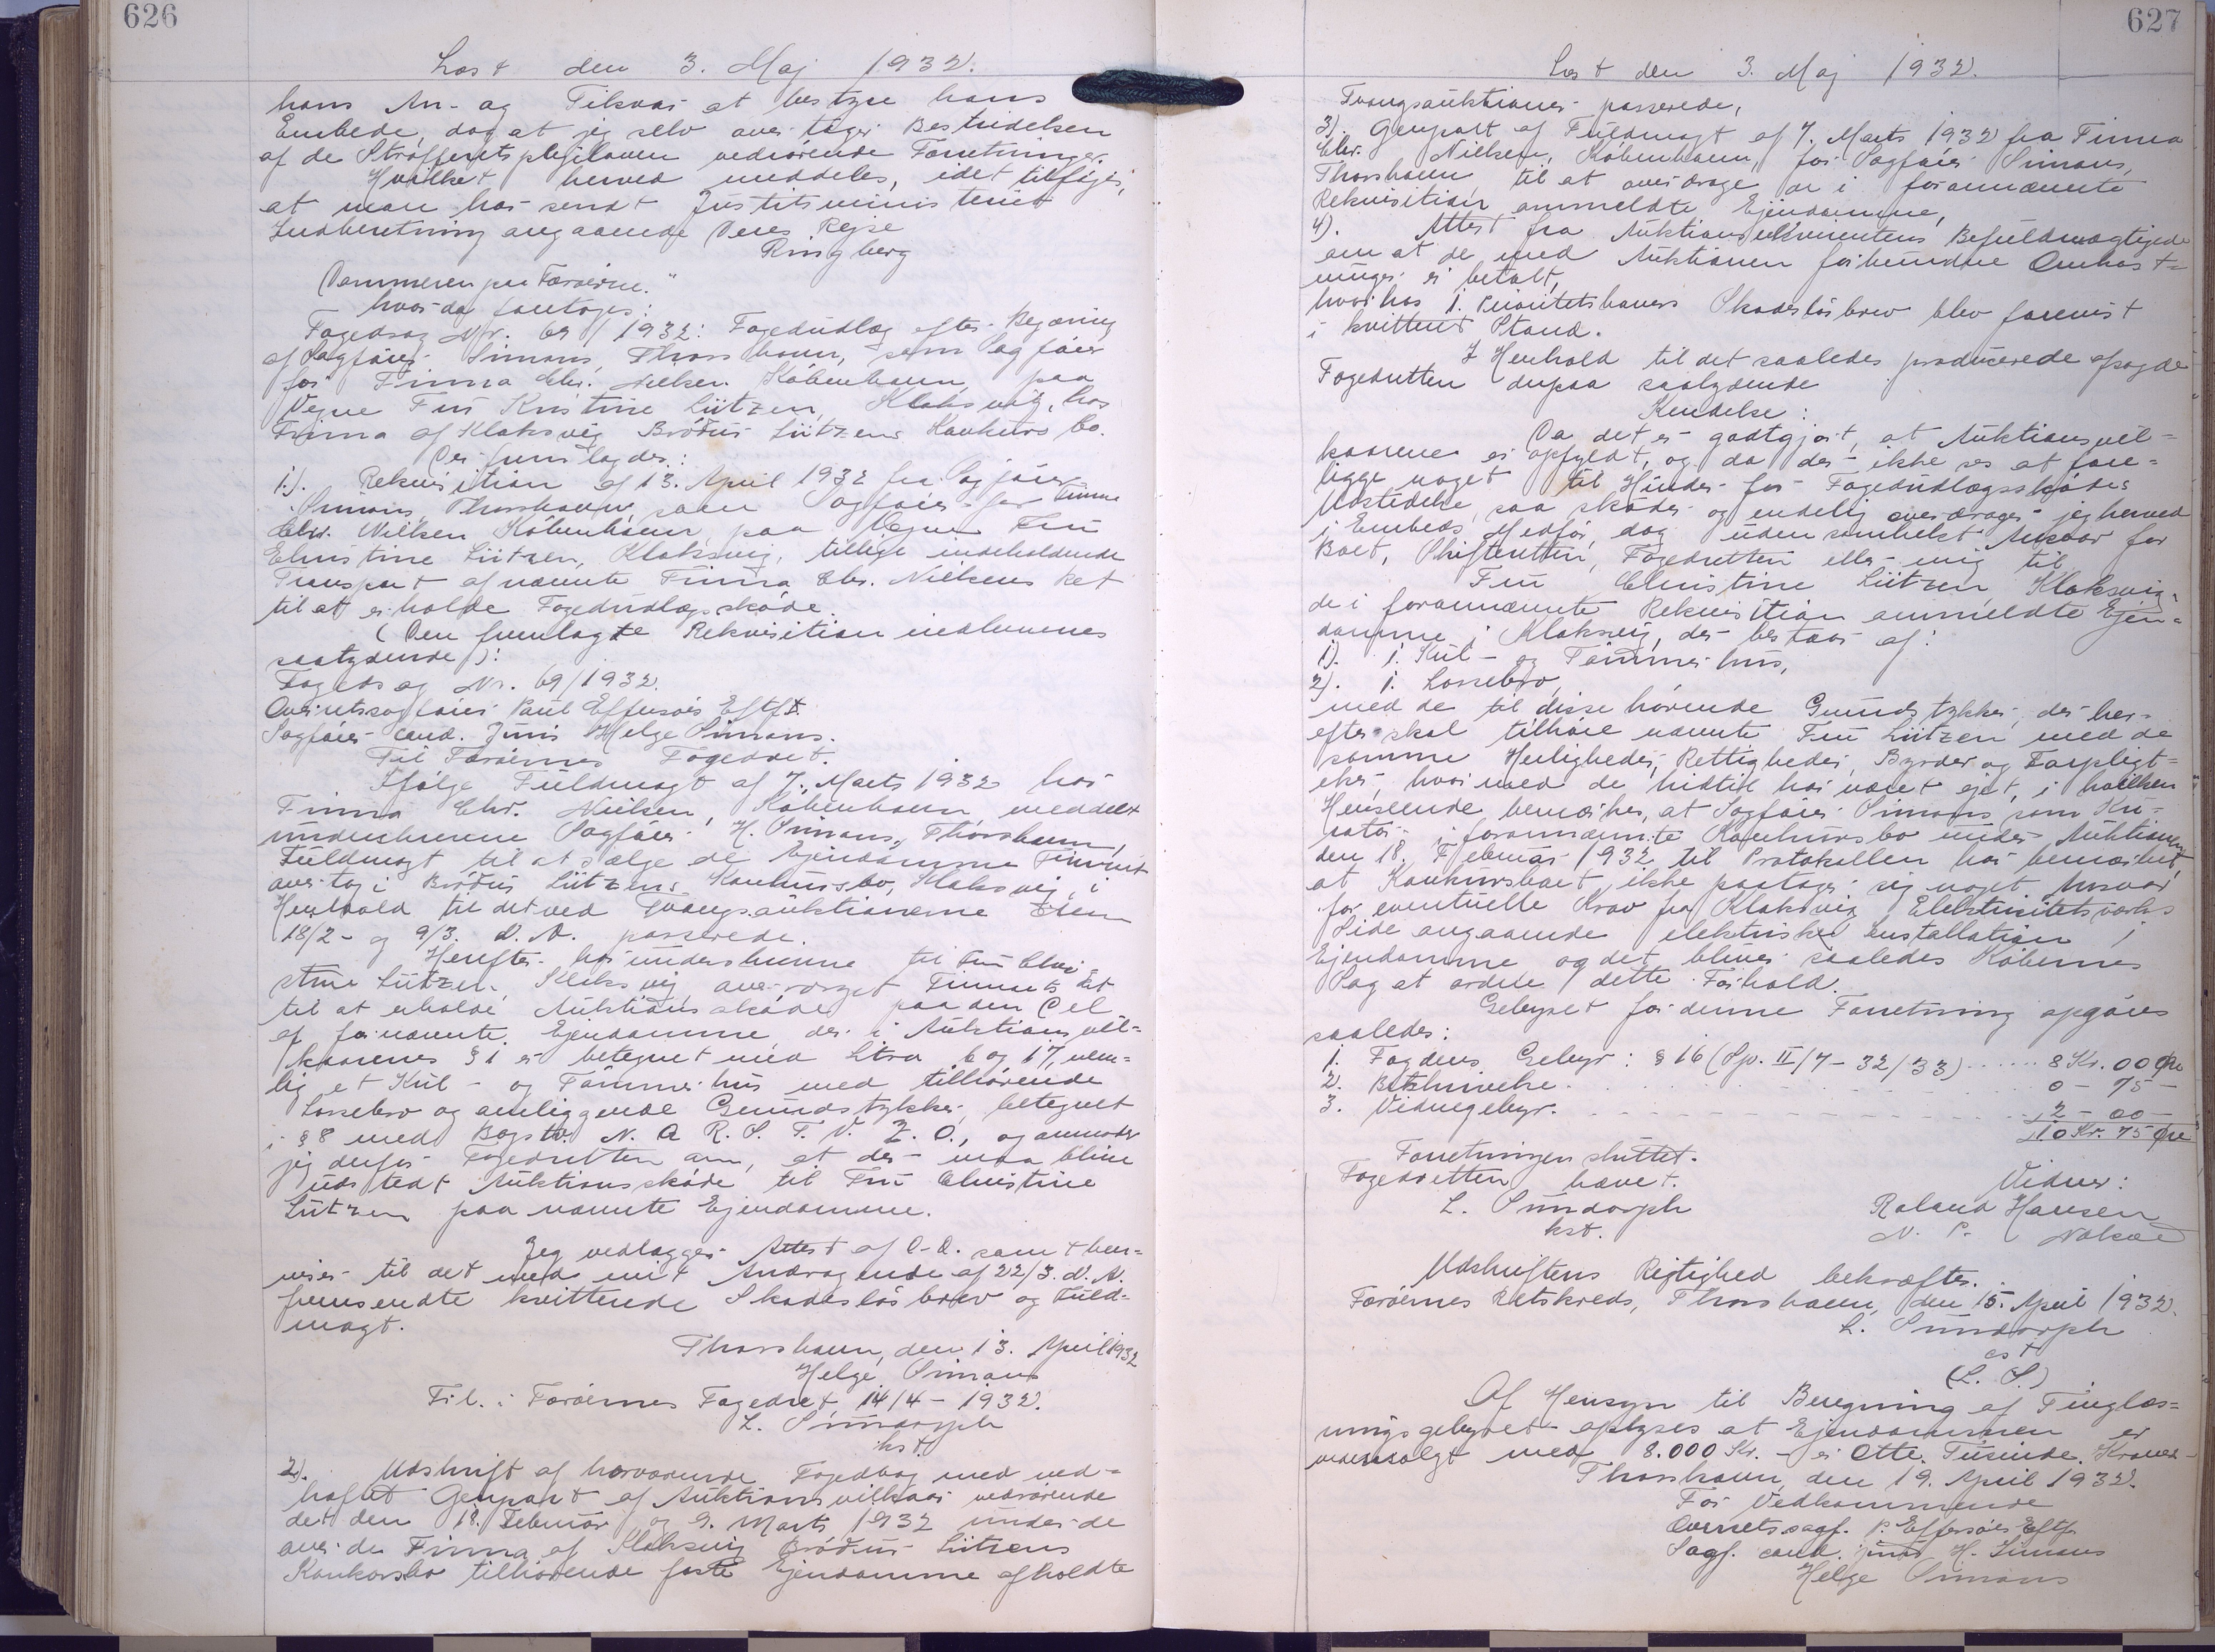 626
Læst den 3. Maj 1932.
hans An- og Tilsvar at bestyre hans
Embede, dog at jeg selv overtager Bestridelsen
af de Strafferetsplejeloven vedrørende Forretninger.
Hvilket herved meddeles, idet tilføjes,
at man har sendt Justitsministeriet
Indberetning angaaende Deres Rejse
Ringberg
Dommeren paa Færøerne."
hvorda foretoges:
Fogedsag Nr. 69/1932: Fogedudlæg efter Begæring
af Sagfører Simons, Thorshavn, som Sagfører
for Firma Chr. Nielsen København, paa
Vegne Fru Kristine Lützen, Klaksvig, hos
Firma af Klaksvig Brødrene Lützens Konkurs bo.
Der fremlagdes:
1.). Rekvisition af 13. April 1932 fra Sagfører
Simons, Thorshavn som Sagfører for Firma
Chr. Nielsen København paa Vegne Fru
Christine Lützen, Klaksvig, tillige indeholdende
Transport af nævnte Firma Chr. Nielsens Ret
til at erholde Fogedudlægsskøde.
(Den fremlagte Rekvisition indlemmes
saalydende):
Fogedsag Nr. 69/1932.
Overretssagfører Paul Effersøes Eftf.
Sagfører cand. juris Helge Simons.
Til Færøernes Fogedret.
Ifølge Fuldmagt af 7. Marts 1932 har
Firma Chr. Nielsen, København meddelt
underskrevne Sagfører H. Simons, Thorshavn,
Fuldmagt til at sælge de Ejendomme Firmaet
overtog i Brødrene Lützens Konkursbo, Klaksvig, i
Henhold til det ved Tvangsauktionerne den
18/2- og 9/3. d. A. passerede.
Herefter har underskrevne til Fru Chri
stine Lützen, Klaksvig overdraget Firmaets Ret
til at erholde Auktionsskøde paa den Del
af fornævnte Ejendomme der i Auktionsvil=
kaarenes § 1 er betegnet med Litra 6 og 17, nem=
lig et Kul- og Tømmerhus med tilhørende
Lossebro og omliggende Grundstykker, betegnet
i § 8 med Bogstv. N. Q R. S. T. V. Z. O., og anmoder
jeg derfor Fogedretten om, at der maa blive
udstedt Auktionsskøde til Fru Christine
Lützen paa nævnte Ejendomme.
Jeg vedlægger Attest af D-D. samt hen=
viser til det med mit Andragende af 22/3. d. A.
fremsendte kvitterede Skadesløsbrev og Fuld=
magt.
Thorshavn, den 13. April 1932
Helge Simons
Til: Færøernes Fogedret 14/4-1932.
L. Sundorph
kst.
2). Udskrift af nærværende Fogedbog med ved=
hæftet Genpart af Auktionsvilkaar vedrørende
det den 18. Februar og 9. Marts 1932 under de
over de Firma af Klaksvig Brødrene Lützens
Konkursbo tilhørende faste Ejendomme afholdte
627
Læst den 3. Maj 1932.
Tvangsauktioner passerede,
3). Genpart af Fuldmagt af 7. Marts 1932 fra Firma
Chr. Nielsen, København, for Sagfører Simons,
Thorshavn til at overdrage de i forannævnte
Rekvisition ommeldte Ejendomme,
4). Attest fra Auktionsrekvirentens Befuldmægtigede
om at de med Auktionen forbundne Omkost=
ninger er betalt,
hvorhos 1. Prioritetshavers Skadesløsbrev blev forevist
i kvitteret Stand.
I Henhold til det saaledes producerede afsagde
Fogedretten derpaa saalydende
Kendelse:
Da det er godtgjort, at Auktionsvil=
kaarene er opfyldt, og da der ikke ses at fore=
ligge noget til Hinder for Fogedudlægsskødes
Udstedelse, saa skøder og endelig overdrager jeg herved
i Embeds Medfør, dog uden somhelst Ansvar for
Boet, Skifteretten, Fogedretten eller mig til
Fru Christine Lützen Klaksvig
de i forannævnte Rekvisition ommeldte Ejen=
domme i Klaksvig, der bestaar af:
1). 1. Kul- og Tømmerhus,
2). 1. Lossebro,
med de til disse hørende Grundstykker, der her=
efter skal tilhøre nævnte Fru Lützen med de
samme Herligheder, Rettigheder, Byrder og Forpligt=
elser, hvormed de hidtil har været ejet, i hvilken
Henseende bemærkes, at Sagfører Simons som Ku=
rator i forannævnte Konkursbo under Auktionen
den 18. Februar 1932 til Protokollen har bemærket
at Konkursboet ikke paatager sig noget Ansvar
for eventuelle Krav fra Klaksvig Elektricitetsværks
Side angaaende elektriske Installation i
Ejendomme og det bliver saaledes Købernes
Sag at ordne dette Forhold.
Gebyret for denne Forretning opgøres
saaledes:
1. Fogdens Gebyr: § 16 (Sp. II/7-32/33) ..... 8 Kr. 00 Øre
2. Beskrivelse. 0 - 75 -
3. Vidnegebyr. 2 - 00 -
10 Kr. 75 Øre
Forretningen sluttet.
Fogedretten hævet.
Vidner:
L. Sundorph
Roland Hansen
kst.
N. P.
Udskriftens Rigtighed bekræftes.
Færøernes Retskreds, Thorshavn, den 15. April 1932.
L. Sundorph
cst
(L. S.)
Af Hensyn til Beregning af Tinglæs=
ningsgebyret oplyses at Ejendommen er
videresolgt med 8.000 Kr. er Otte Tusinde Kroner
Thorshavn, den 19. April 1932.
For Vedkommende
Overretssagf. P. Effersøes Eftf.
Sagf. cand. juris H. Simons
Helge Simons